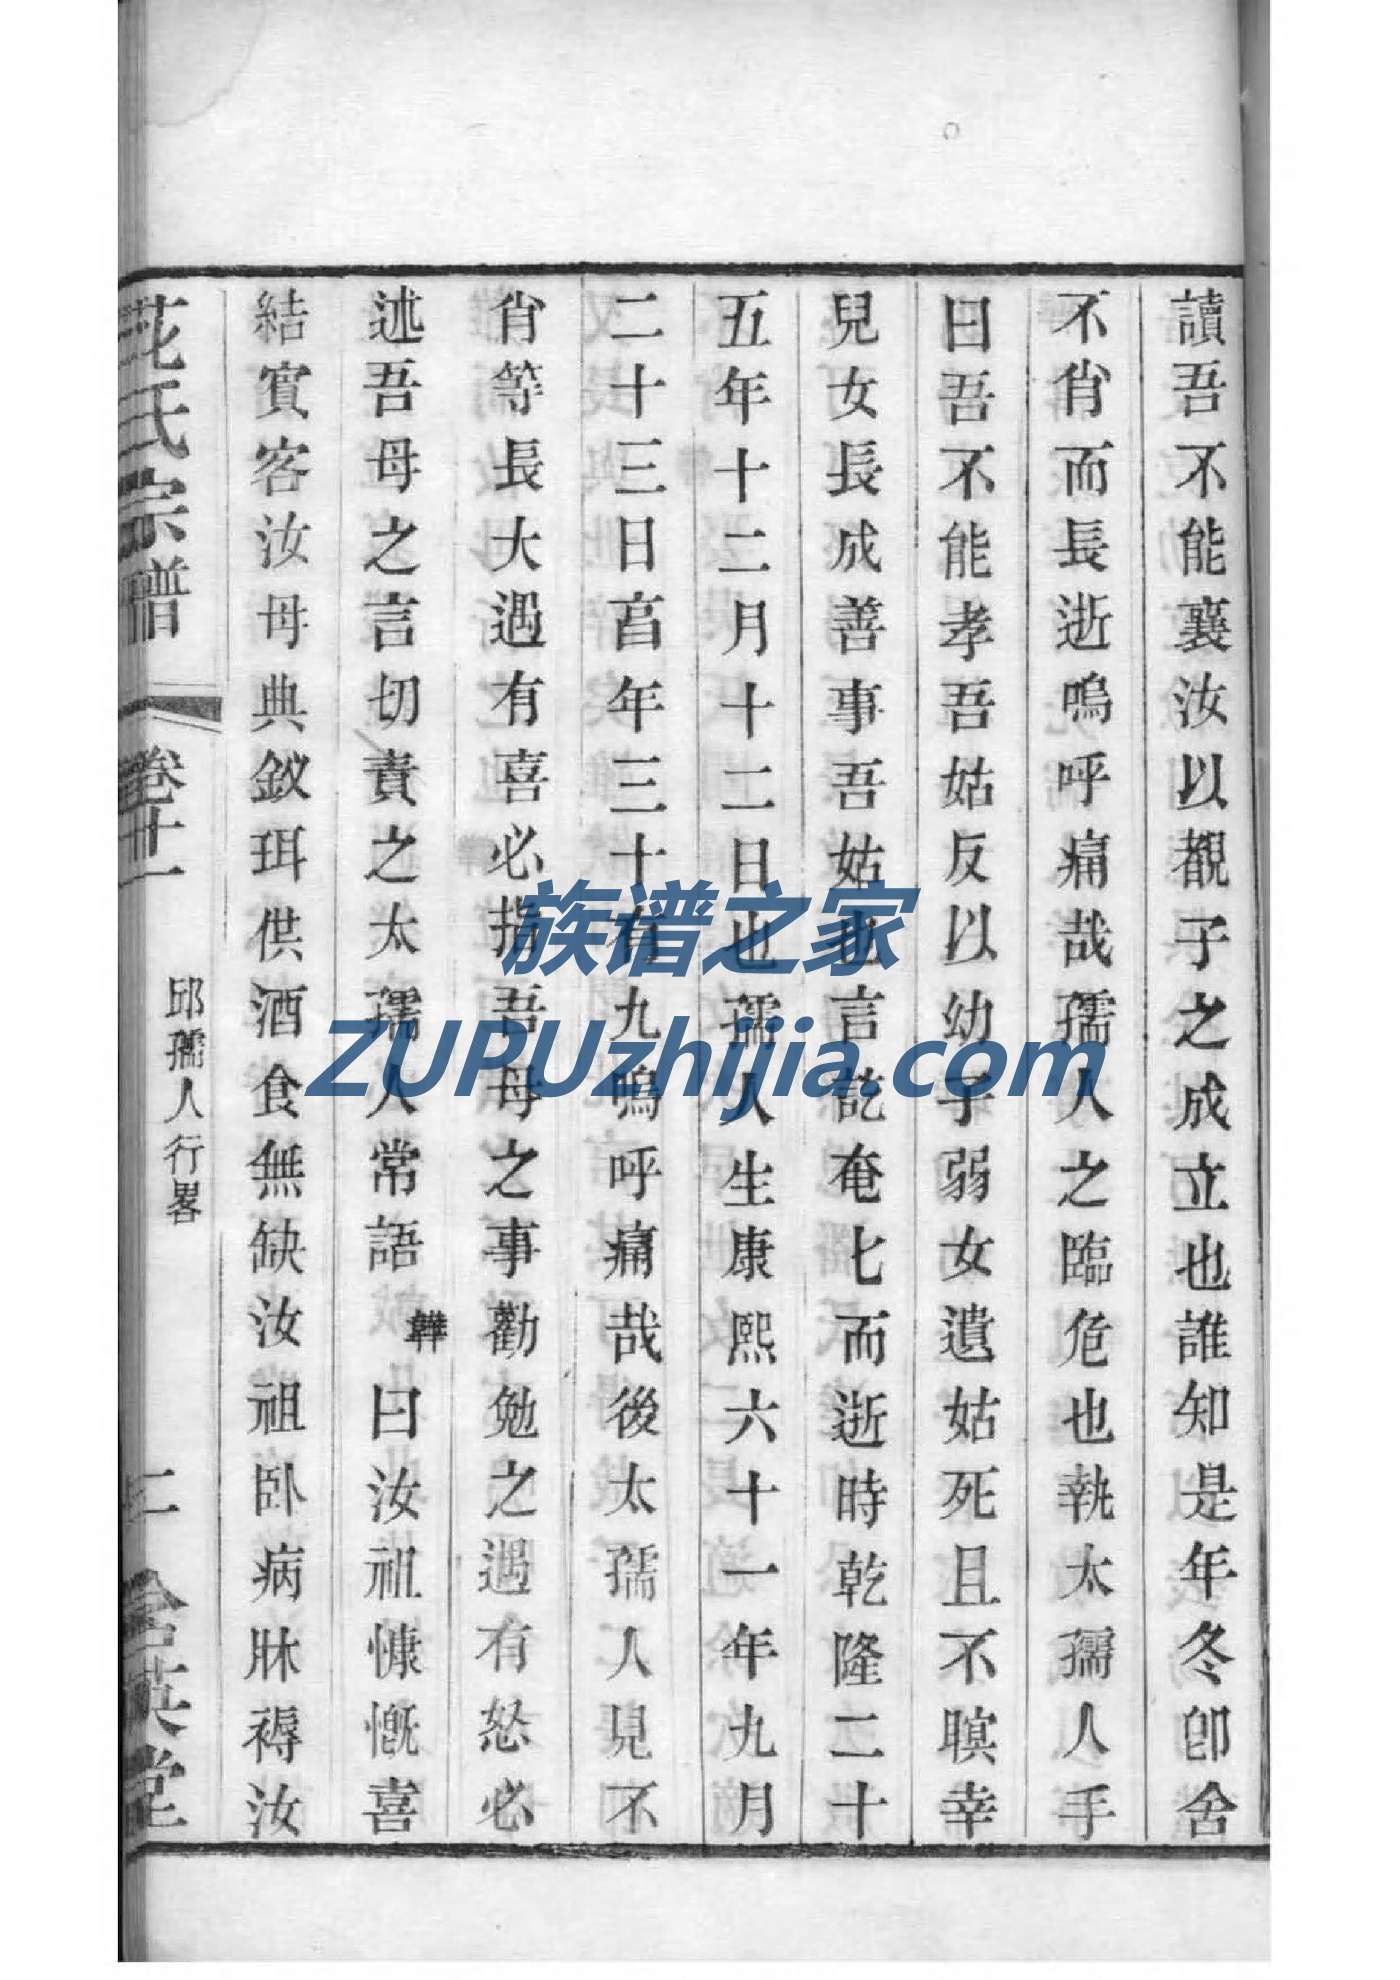 讀吾不能襄汝以覩子之成立也誰知是年冬卽舍
不肖而長逝嗚呼痛哉孺人之臨危也執太孺人手
曰吾不能孝吾姑反以幼子弱女遺姑死且不瞑幸
兒女長成善事吾姑也言訖奄七而逝時乾隆二十
五年十二月十二日也孺人生康熙六十一年九月
二十三日亯年三十有九嗚呼痛哉後太孺人見不
肖等長大遇有喜必指吾母之事勸勉之遇有怒必
述吾母之言切責之太孺人常語韡曰汝祖慷慨喜
結賓客汝母典釵珥供酒食無缺汝祖臥病牀褥汝
花氏宗譜 卷十一 邱孺人行畧 二 含英堂
族谱之家
ZUPUzhijia.com